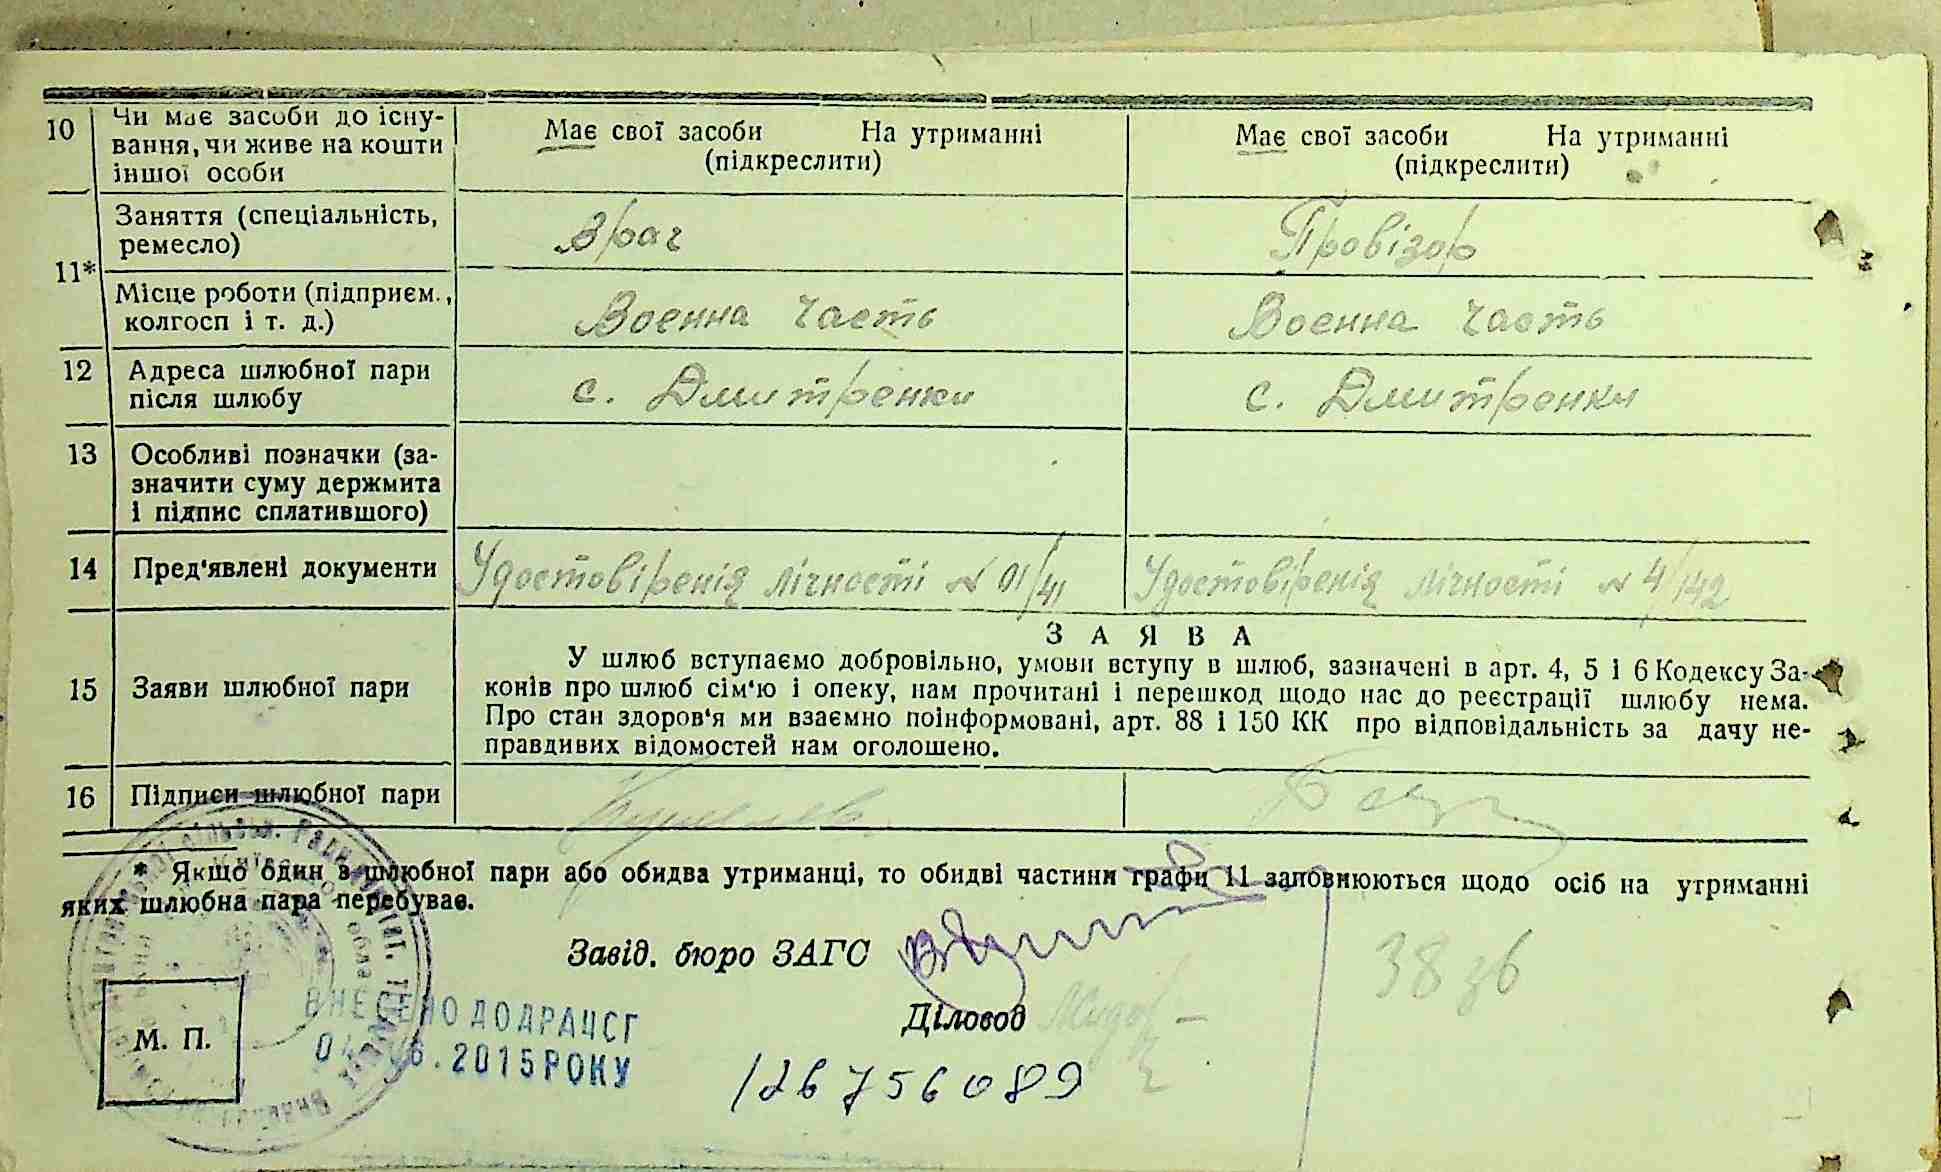 10 Чи має засоби до існу-
вання, чи живе на кошти
іншої особи
Має свої засоби На утриманні
(підкреслити)
Має свої засоби На утриманні
(підкреслити)
11*
Заняття (спеціальність,
ремесло)
Врач
Провізор
Місце роботи (підприєм.,
колгосп і т. д.)
Военна часть
Военна часть
12 Адреса шлюбної пари
після шлюбу
с. Дмитренки
с. Дмитренки
13 Особливі позначки (за-
значити суму держмита
і підпис сплатившого)
14 Пред'явлені документи
Удостовіренія лічності № 01/41
Удостовіренія лічності № 4/142
15 Заяви шлюбної пари
ЗАЯВА
У шлюб вступаємо добровільно, умови вступу в шлюб, зазначені в арт. 4, 5 і 6 Кодексу За-
конів про шлюб сім'ю і опеку, нам прочитані і перешкод щодо нас до реєстрації шлюбу нема.
Про стан здоров'я ми взаємно поінформовані, арт. 88 і 150 КК про відповідальність за дачу не-
правдивих відомостей нам оголошено.
16 Підписи шлюбної пари
* Якщо один з шлюбної пари або обидва утриманці, то обидві частини графи 11 заповнюються щодо осіб на утриманні
яких шлюбна пара перебуває.
Завід. бюро ЗАГС
Діловод
М. П.
ВНЕСЕНО ДО ДРАЦСГ
04.06.2015 РОКУ
126756089